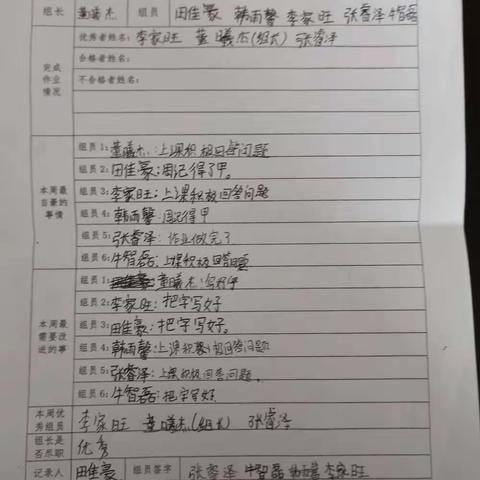 组长 董曦杰 组员 田佳豪 韩雨馨 李家旺 张睿泽 牛智磊
完成作业情况
优秀者姓名：李家旺 董曦杰(组长) 张睿泽
合格者姓名：
不合格者姓名：
本周最自豪的事情
组员1：董曦杰：上课积极回答问题
组员2：田佳豪：周记得了甲。
组员3：李家旺：上课积极回答问题
组员4：韩雨馨：周记得甲
组员5：张睿泽：作业做完了
组员6：牛智磊：上课积极回答问题
本周最需要改进的事
组员1：董曦杰：
组员2：李家旺：把字写好
组员3：田佳豪：把字写好。
组员4：韩雨馨：上课积极回答问题
组员5：张睿泽：上课积极回答问题。
组员6：牛智磊：把字写好
本周优秀组员 李家旺 董曦杰(组长) 张睿泽
组长是否尽职 优秀
记录人 田佳豪 组员签字 张睿泽 牛智磊 韩雨馨 李家旺